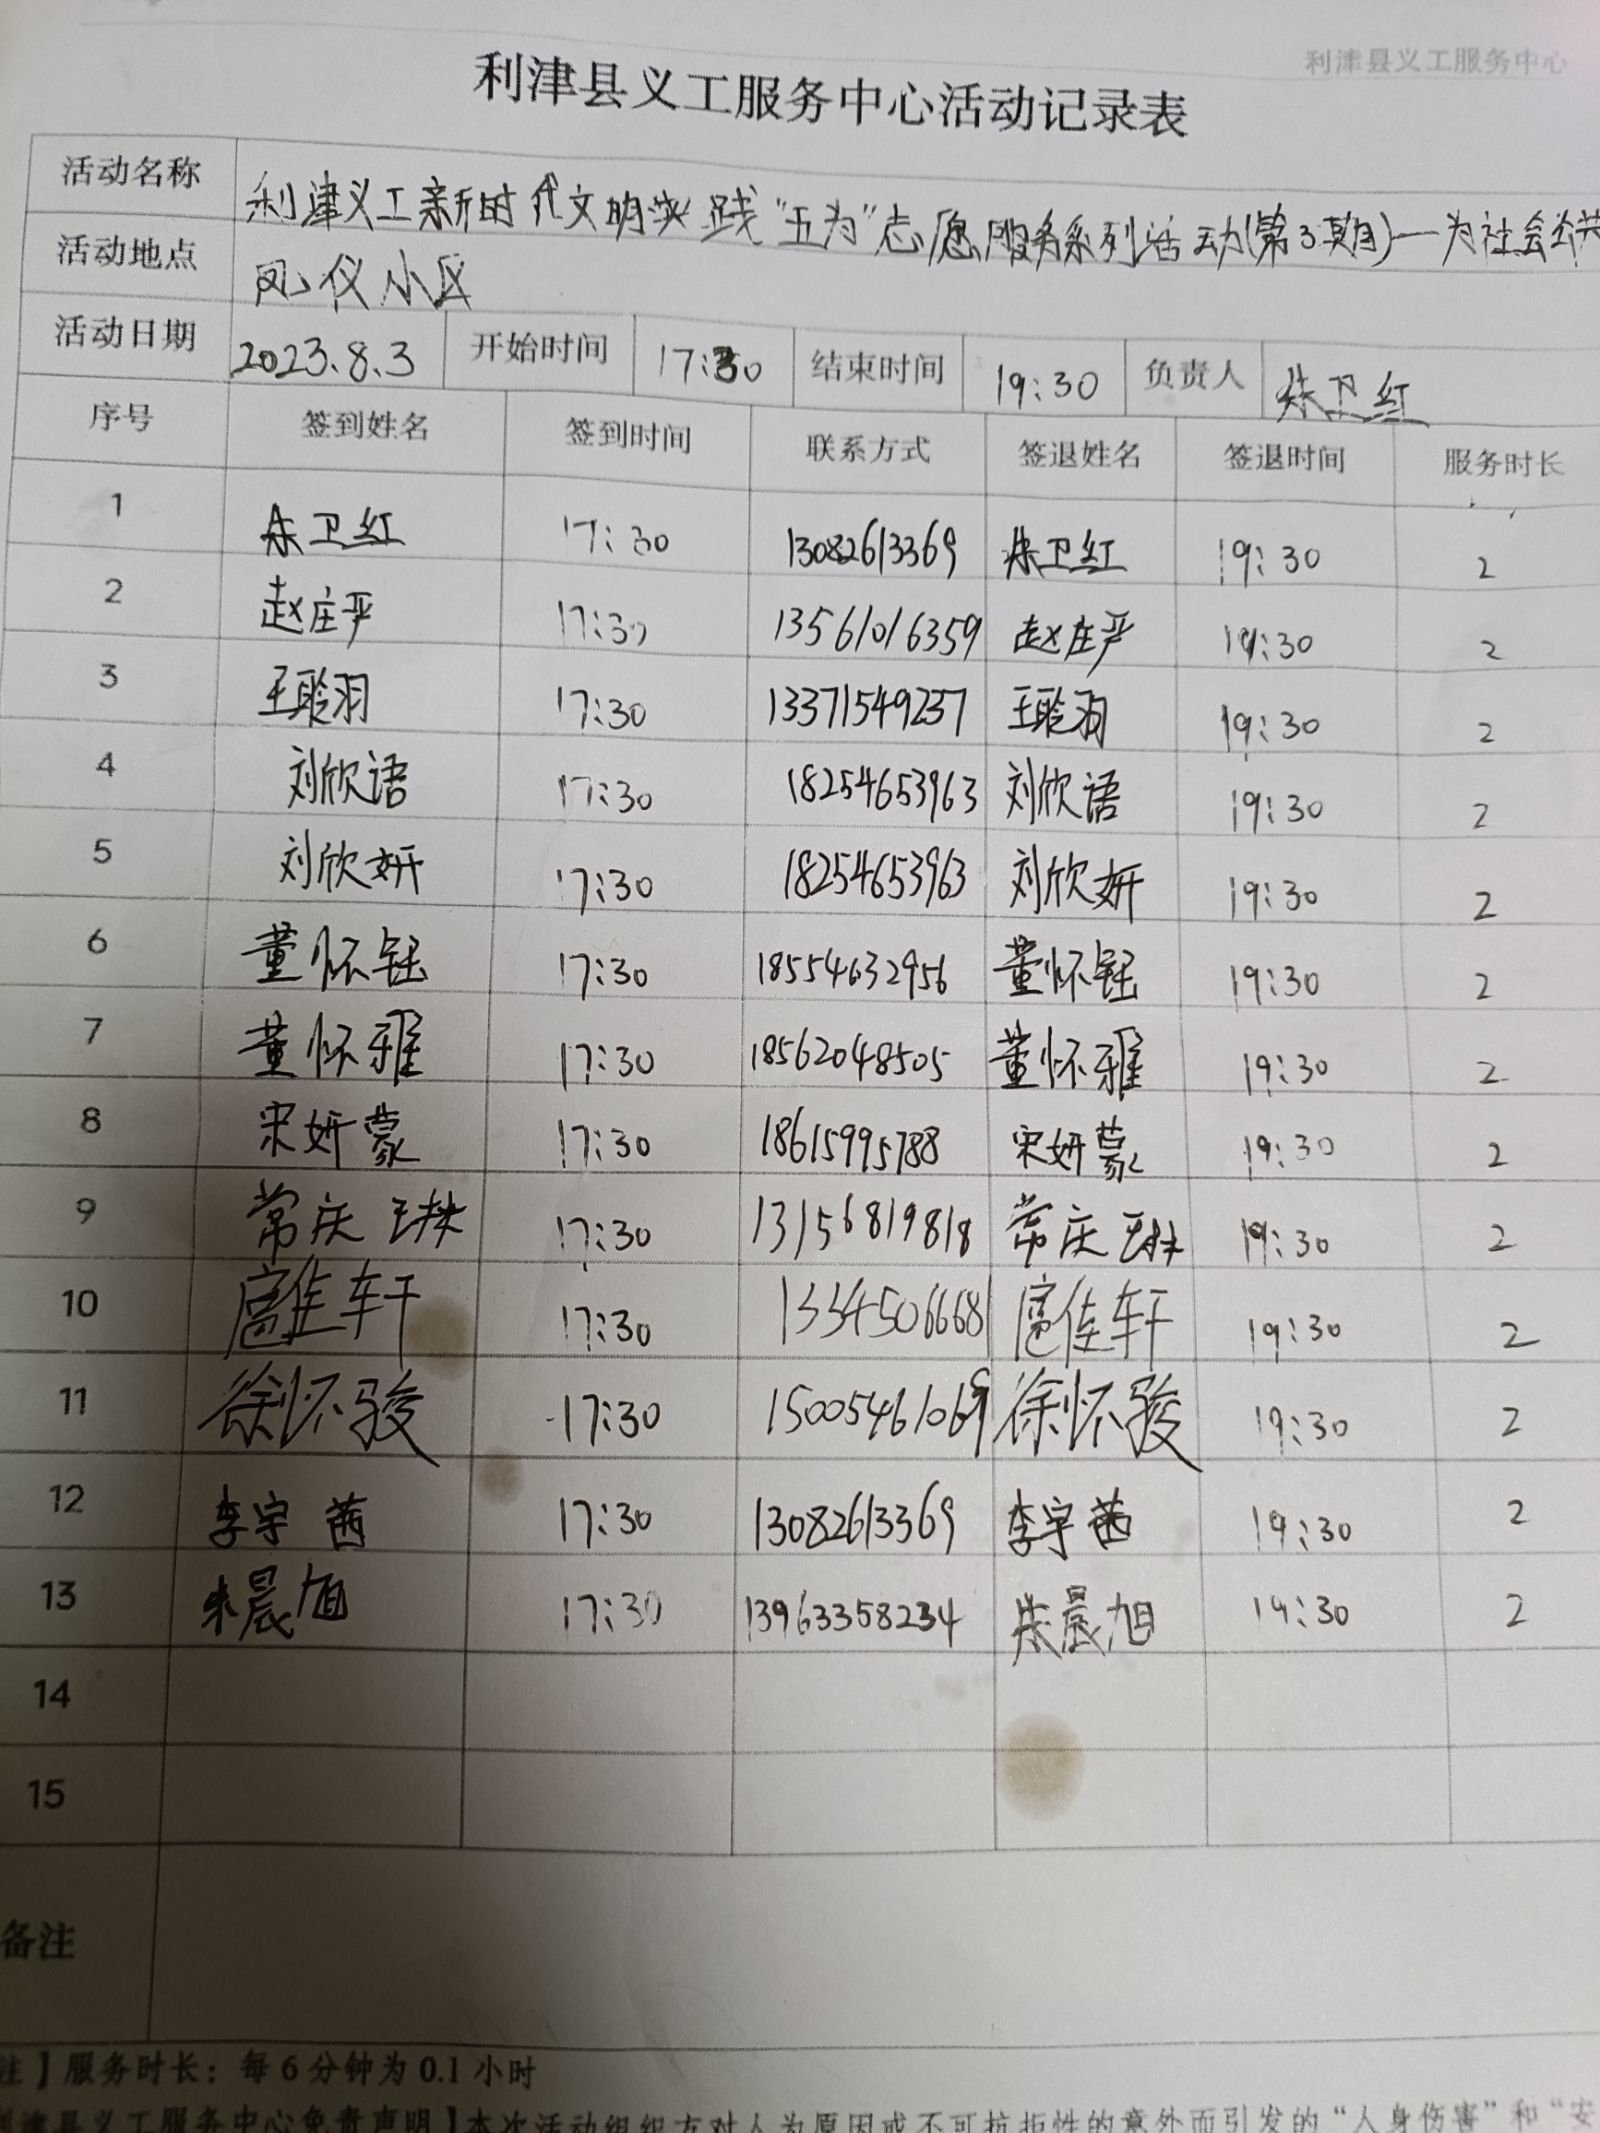 利津县义工服务中心
利津县义工服务中心活动记录表
活动名称 利津义工新时代文明实践“五为”志愿服务系列活动(第3期)—为社会公共
活动地点 凤仪小区
活动日期 2023.8.3 开始时间 17:30 结束时间 19:30 负责人 朱卫红
序号 签到姓名 签到时间 联系方式 签退姓名 签退时间 服务时长
1 朱卫红 17:30 13082613369 朱卫红 19:30 2
2 赵庄严 17:30 13561016359 赵庄严 19:30 2
3 王聆羽 17:30 13371549237 王聆羽 19:30 2
4 刘欣语 17:30 18254653963 刘欣语 19:30 2
5 刘欣妍 17:30 18254653963 刘欣妍 19:30 2
6 董怀钰 17:30 18554632956 董怀钰 19:30 2
7 董怀雅 17:30 18562048505 董怀雅 19:30 2
8 宋妍蒙 17:30 18615995788 宋妍蒙 19:30 2
9 常庆琳 17:30 13156819818 常庆琳 19:30 2
10 扈佳轩 17:30 13345066681 扈佳轩 19:30 2
11 徐怀骏 17:30 15005461069 徐怀骏 19:30 2
12 李宇茜 17:30 13082613369 李宇茜 19:30 2
13 朱晨旭 17:30 13963358234 朱晨旭 19:30 2
14
15
备注
注】服务时长：每6分钟为0.1小时
利津县义工服务中心免责声明】本次活动组织方对人为原因或不可抗拒性的意外而引发的“人身伤害”和“安